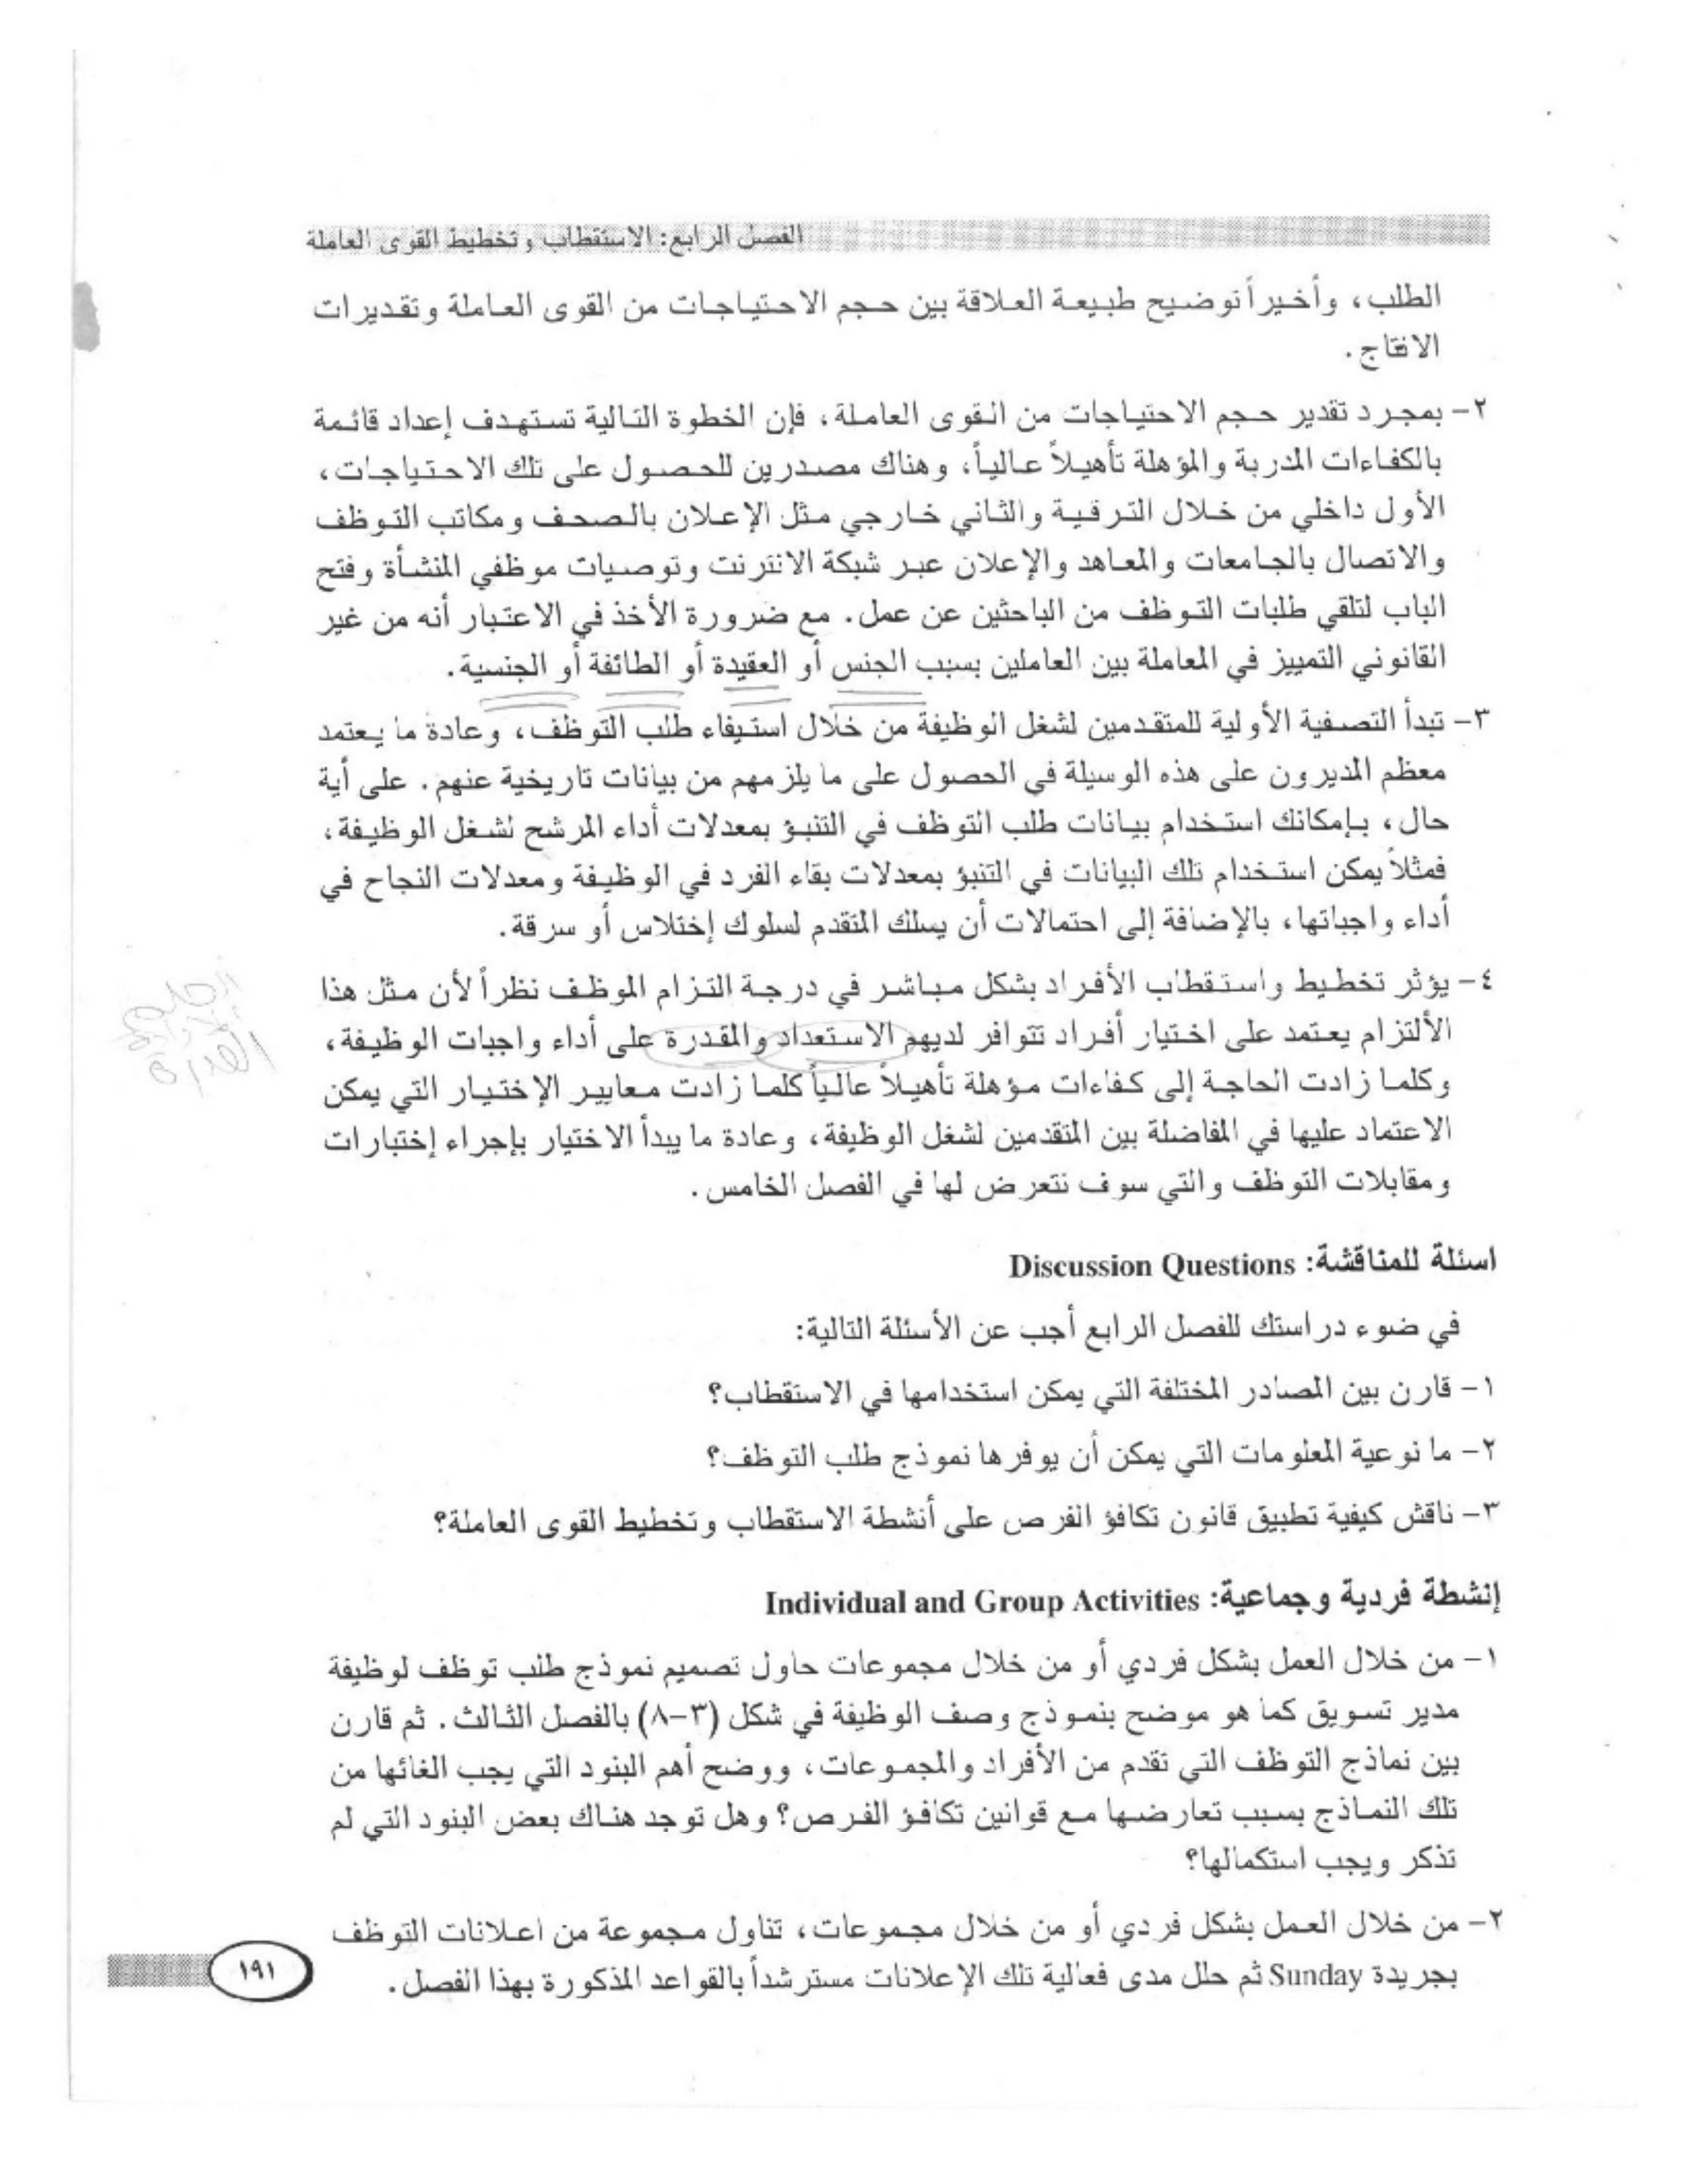 الفصل الرابع: الاستقطاب وتخطيط القوى العاملة
الطلب، وأخيراً توضيح طبيعة العلاقة بين حجم الاحتياجات من القوى العاملة وتقديرات
الانتاج.
٢- بمجرد تقدير حجم الاحتياجات من القوى العاملة، فإن الخطوة التالية تستهدف إعداد قائمة
بالكفاءات المدربة والمؤهلة تأهيلاً عالياً، وهناك مصدرين للحصول على تلك الاحتياجات،
الأول داخلي من خلال الترقية والثاني خارجي مثل الإعلان بالصحف ومكاتب التوظف
والاتصال بالجامعات والمعاهد والإعلان عبر شبكة الانترنت وتوصيات موظفي المنشأة وفتح
الباب لتلقي طلبات التوظف من الباحثين عن عمل. مع ضرورة الأخذ في الاعتبار أنه من غير
القانوني التمييز في المعاملة بين العاملين بسبب الجنس أو العقيدة أو الطائفة أو الجنسية.
٣- تبدأ التصفية الأولية للمتقدمين لشغل الوظيفة من خلال استيفاء طلب التوظف، وعادة ما يعتمد
معظم المديرون على هذه الوسيلة في الحصول على ما يلزمهم من بيانات تاريخية عنهم. على أية
حال، بإمكانك استخدام بيانات طلب التوظف في التنبؤ بمعدلات أداء المرشح لشغل الوظيفة،
فمثلاً يمكن استخدام تلك البيانات في التنبؤ بمعدلات بقاء الفرد في الوظيفة ومعدلات النجاح في
أداء واجباتها، بالإضافة إلى احتمالات أن يسلك المتقدم لسلوك إختلاس أو سرقة.
٤- يؤثر تخطيط واستقطاب الأفراد بشكل مباشر في درجة التزام الموظف نظراً لأن مثل هذا
الألتزام يعتمد على اختيار أفراد تتوافر لديهم الاستعداد والمقدرة على أداء واجبات الوظيفة،
وكلما زادت الحاجة إلى كفاءات مؤهلة تأهيلاً عالياً كلما زادت معايير الإختيار التي يمكن
الاعتماد عليها في المفاضلة بين المتقدمين لشغل الوظيفة، وعادة ما يبدأ الاختيار بإجراء إختبارات
ومقابلات التوظف والتي سوف نتعرض لها في الفصل الخامس.
اسئلة للمناقشة: Discussion Questions
في ضوء دراستك للفصل الرابع أجب عن الأسئلة التالية:
١- قارن بين المصادر المختلفة التي يمكن استخدامها في الاستقطاب؟
٢- ما نوعية المعلومات التي يمكن أن يوفرها نموذج طلب التوظف؟
٣- ناقش كيفية تطبيق قانون تكافؤ الفرص على أنشطة الاستقطاب وتخطيط القوى العاملة؟
إنشطة فردية وجماعية: Individual and Group Activities
١- من خلال العمل بشكل فردي أو من خلال مجموعات حاول تصميم نموذج طلب توظف لوظيفة
مدير تسويق كما هو موضح بنموذج وصف الوظيفة في شكل (٣-٨) بالفصل الثالث. ثم قارن
بين نماذج التوظف التي تقدم من الأفراد والمجموعات، ووضح أهم البنود التي يجب الغائها من
تلك النماذج بسبب تعارضها مع قوانين تكافؤ الفرص؟ وهل توجد هناك بعض البنود التي لم
تذكر ويجب استكمالها؟
٢- من خلال العمل بشكل فردي أو من خلال مجموعات، تناول مجموعة من اعلانات التوظف
بجريدة Sunday ثم حلل مدى فعالية تلك الإعلانات مسترشداً بالقواعد المذكورة بهذا الفصل.
١٩١